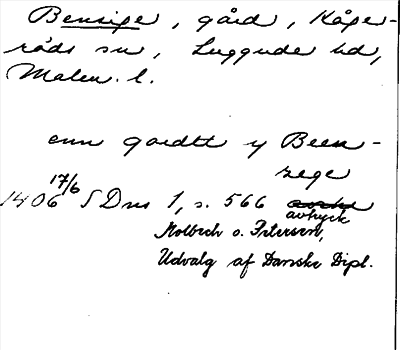 Bensige, gård, Kåge-
röds sn, Luggude hd,
Malm. l.
enn gardtt y Been-
zege
1406 17/6 SDns 1, s. 566 avskr
avtryck
Molbech o. Petersen,
Udvalg af Danske Dipl.